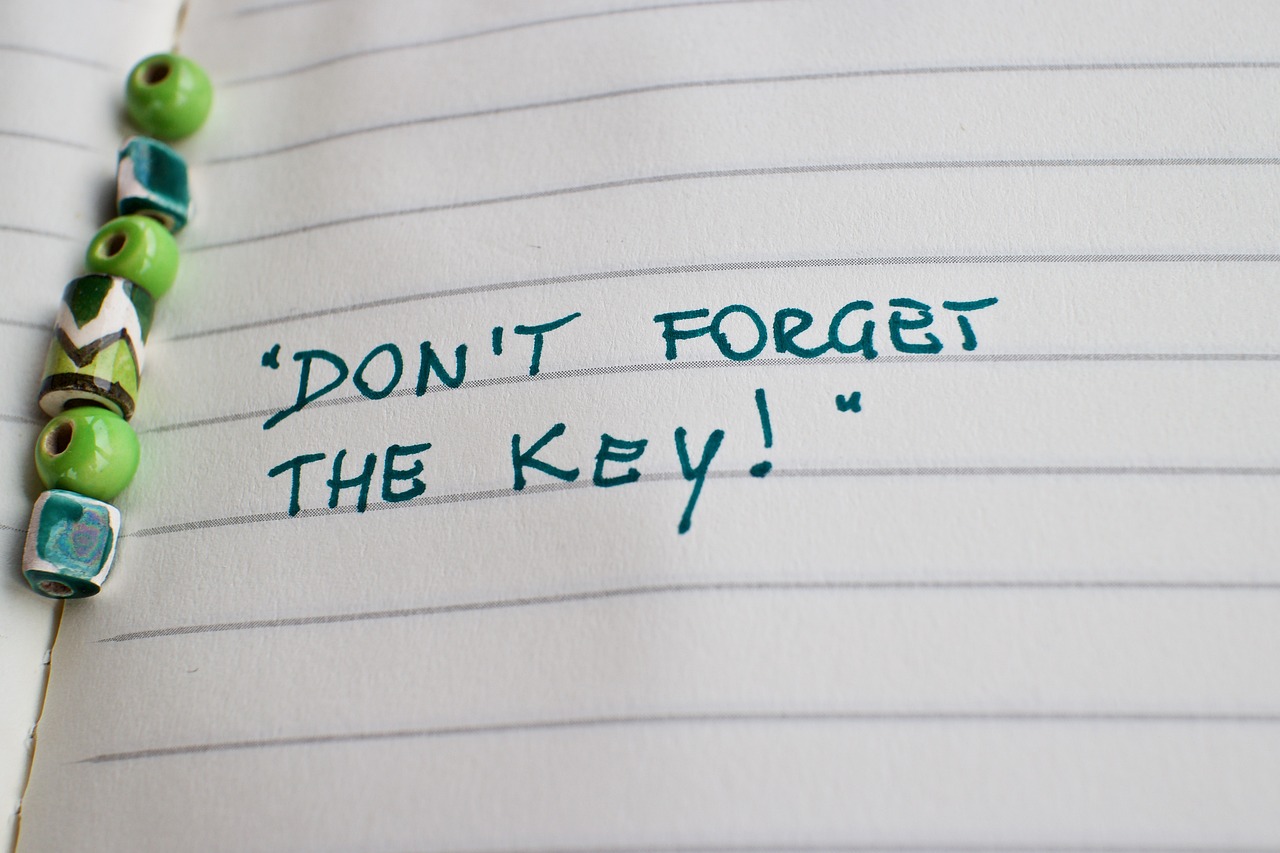 "DON'T FORGET
THE KEY!"